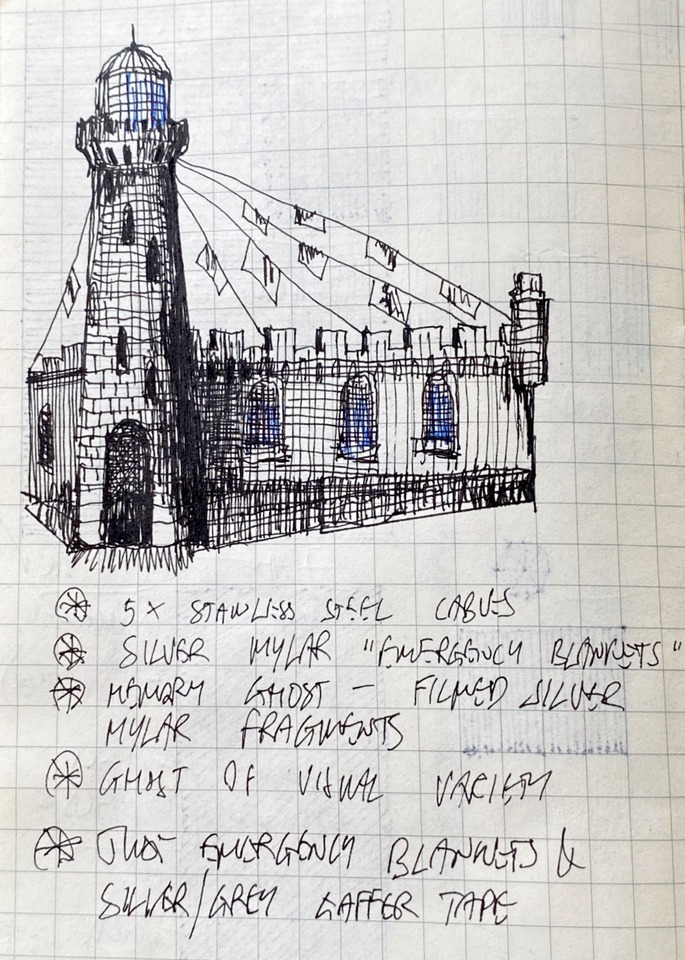 5 X STAINLESS STEEL CABLES
SILVER MYLAR "EMERGENCY BLANKETS"
MEMORY GHOST — FILMED SILVER
MYLAR FRAGMENTS
GHOST OF VISUAL VARIETY
JUST EMERGENCY BLANKETS &
SILVER/GREY GAFFER TAPE